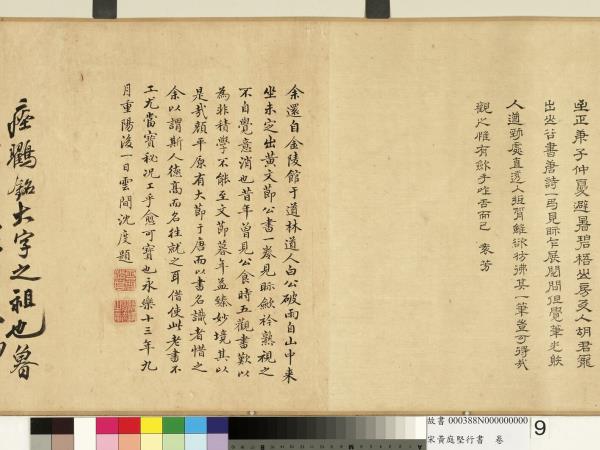 至正庚子仲夏避暑碧梧山房友人胡君寵
出山谷書唐詩一弓見眎乍展閱間但覺筆光燄
人遒勁處直透人短肘雖欲彷彿其一筆豈可得哉
觀止惟有歛手咋舌而已 袁芳
余還自金陵館于道林道人白公破雨自山中來
坐未定出黃文節公書一卷見眎歛衿熟視之
不自覺意消也昔年曾見公食時五觀書歎以
為非積學不能至文節暮年益臻妙境其以
是哉顏平原有大節于唐而以書名識者惜之
余以謂斯人德高而名往就之耳借使此老書不
工尤當寶秘况工乎愈可寶也永樂十三年九
月重陽後一日雲間沈度題
瘞鸖銘大字之祖也魯
故書 000388N000000000
宋黃庭堅行書 卷
9